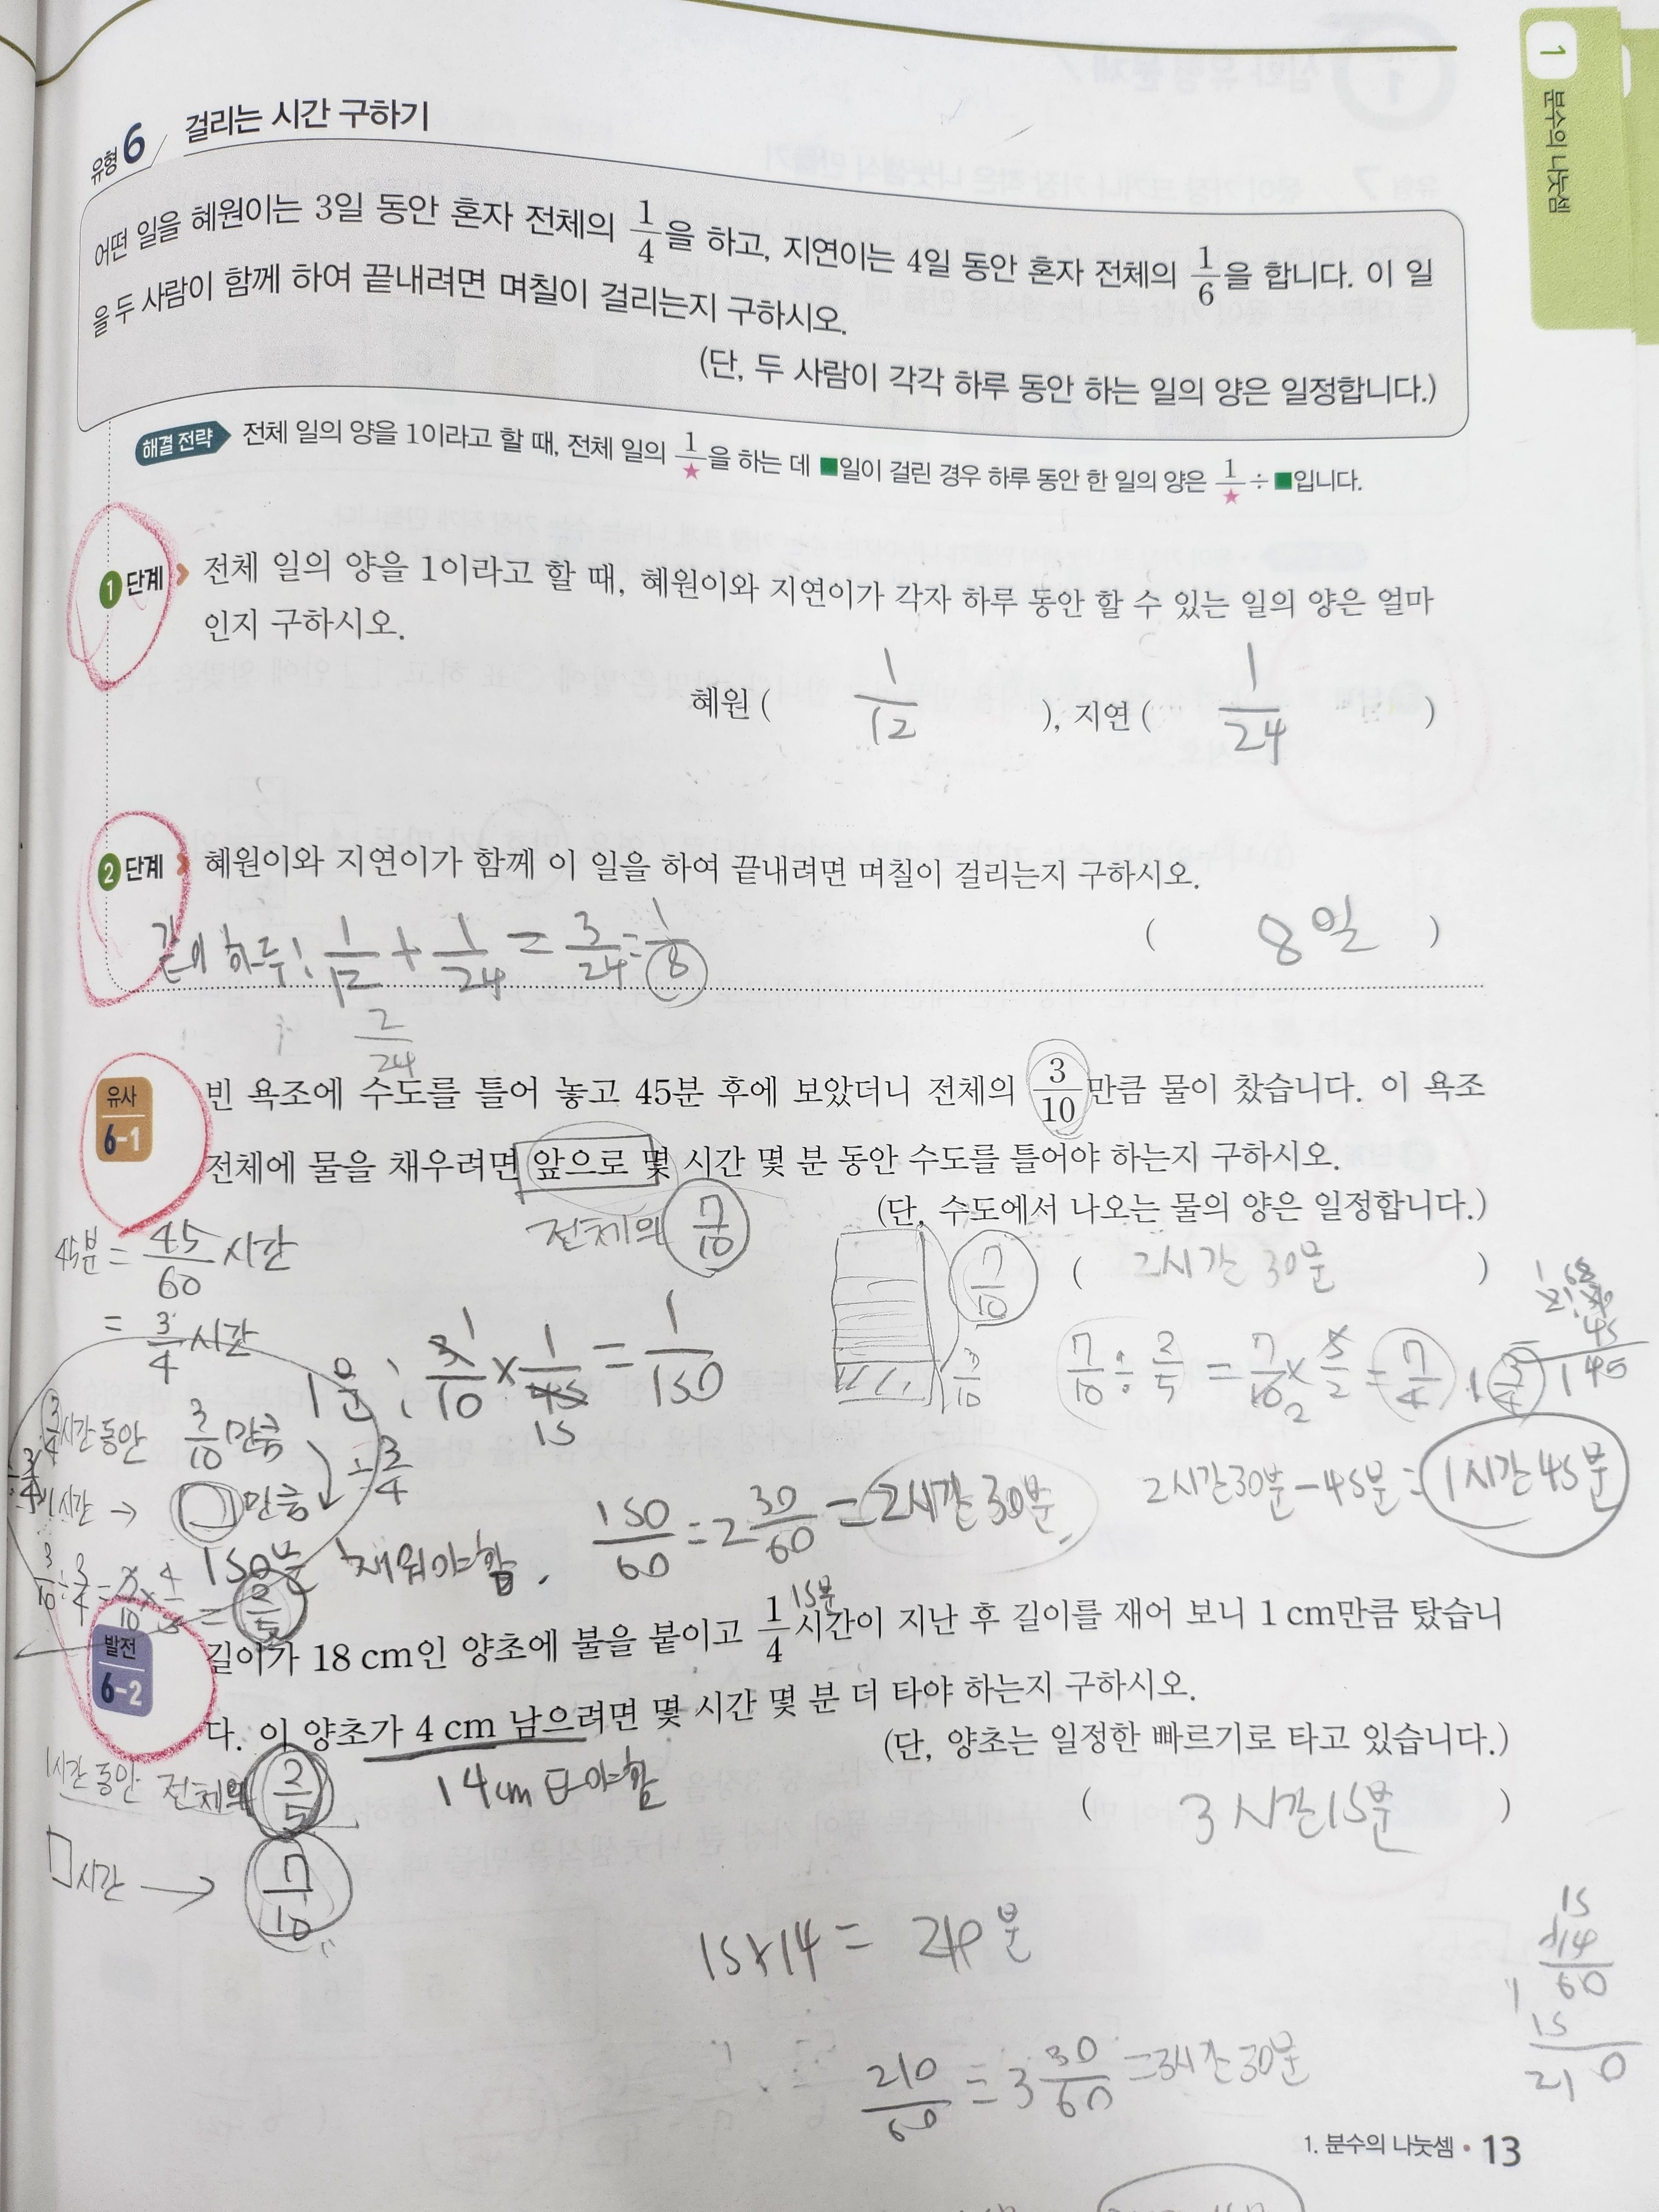 1 분수의 나눗셈
유형 6 걸리는 시간 구하기
어떤 일을 혜원이는 3일 동안 혼자 전체의 1/4을 하고, 지연이는 4일 동안 혼자 전체의 1/6을 합니다. 이 일
을 두 사람이 함께 하여 끝내려면 며칠이 걸리는지 구하시오.
(단, 두 사람이 각각 하루 동안 하는 일의 양은 일정합니다.)
해결 전략 전체 일의 양을 1이라고 할 때, 전체 일의 1/★을 하는 데 ■일이 걸린 경우 하루 동안 한 일의 양은 1/★÷■입니다.
1 단계 전체 일의 양을 1이라고 할 때, 혜원이와 지연이가 각자 하루 동안 할 수 있는 일의 양은 얼마
인지 구하시오.
혜원 ( 1/12 ), 지연 ( 1/24 )
2 단계 혜원이와 지연이가 함께 이 일을 하여 끝내려면 며칠이 걸리는지 구하시오.
( 8일 )
같이 하루: 1/12 + 1/24 = 3/24 = 1/8
2/24
유사 6-1 빈 욕조에 수도를 틀어 놓고 45분 후에 보았더니 전체의 3/10만큼 물이 찼습니다. 이 욕조
전체에 물을 채우려면 앞으로 몇 시간 몇 분 동안 수도를 틀어야 하는지 구하시오.
(단, 수도에서 나오는 물의 양은 일정합니다.)
전체의 7/10
( 2시간 30분 )
45분 = 45/60 시간
= 3/4 시간
7/10
3/10
1분 : 3/10 × 1/45 = 1/150
1
15
7/10 ÷ 2/5 = 7/10 × 5/2 = 7/4 1 3/4
45
145
3/4시간 동안 3/10 만큼
÷ 3/4
1시간 → □ 만큼
3/10 ÷ 3/4 = 3/10 × 4/3 = 2/5
150분 채워야함.
150/60 = 2 30/60 = 2시간 30분
2시간30분 - 45분 = 1시간 45분
15분
발전 6-2 길이가 18 cm인 양초에 불을 붙이고 1/4시간이 지난 후 길이를 재어 보니 1 cm만큼 탔습니
다. 이 양초가 4 cm 남으려면 몇 시간 몇 분 더 타야 하는지 구하시오.
(단, 양초는 일정한 빠르기로 타고 있습니다.)
14cm 타야함
( 3시간 15분 )
1시간 동안 전체의 2/5
□시간 → 7/10
15×14 = 210분
210/60 = 3 30/60 = 3시간 30분
15
×14
60
15
210
1. 분수의 나눗셈 • 13